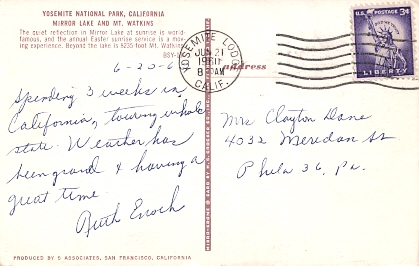 YOSEMITE NATIONAL PARK, CALIFORNIA
MIRROR LAKE AND MT. WATKINS
The quiet reflection in Mirror Lake at sunrise is world-
famous, and the annual Easter sunrise service is a mov-
ing experience. Beyond the lake is 8235 foot Mt. Watkins
6-20-6
Spending 3 weeks in
California, touring whole
state. Weather has
been grand & having a
great time.
Ruth Enoch
PRODUCED BY S ASSOCIATES, SAN FRANCISCO, CALIFORNIA
YOSEMITE LODGE
JUN 21
1961
8 30 AM
CALIF.
address
U.S. POSTAGE 3¢
LIBERTY
Mrs Clayton Dane
4032 Meredan St
Phila 36, Pa.